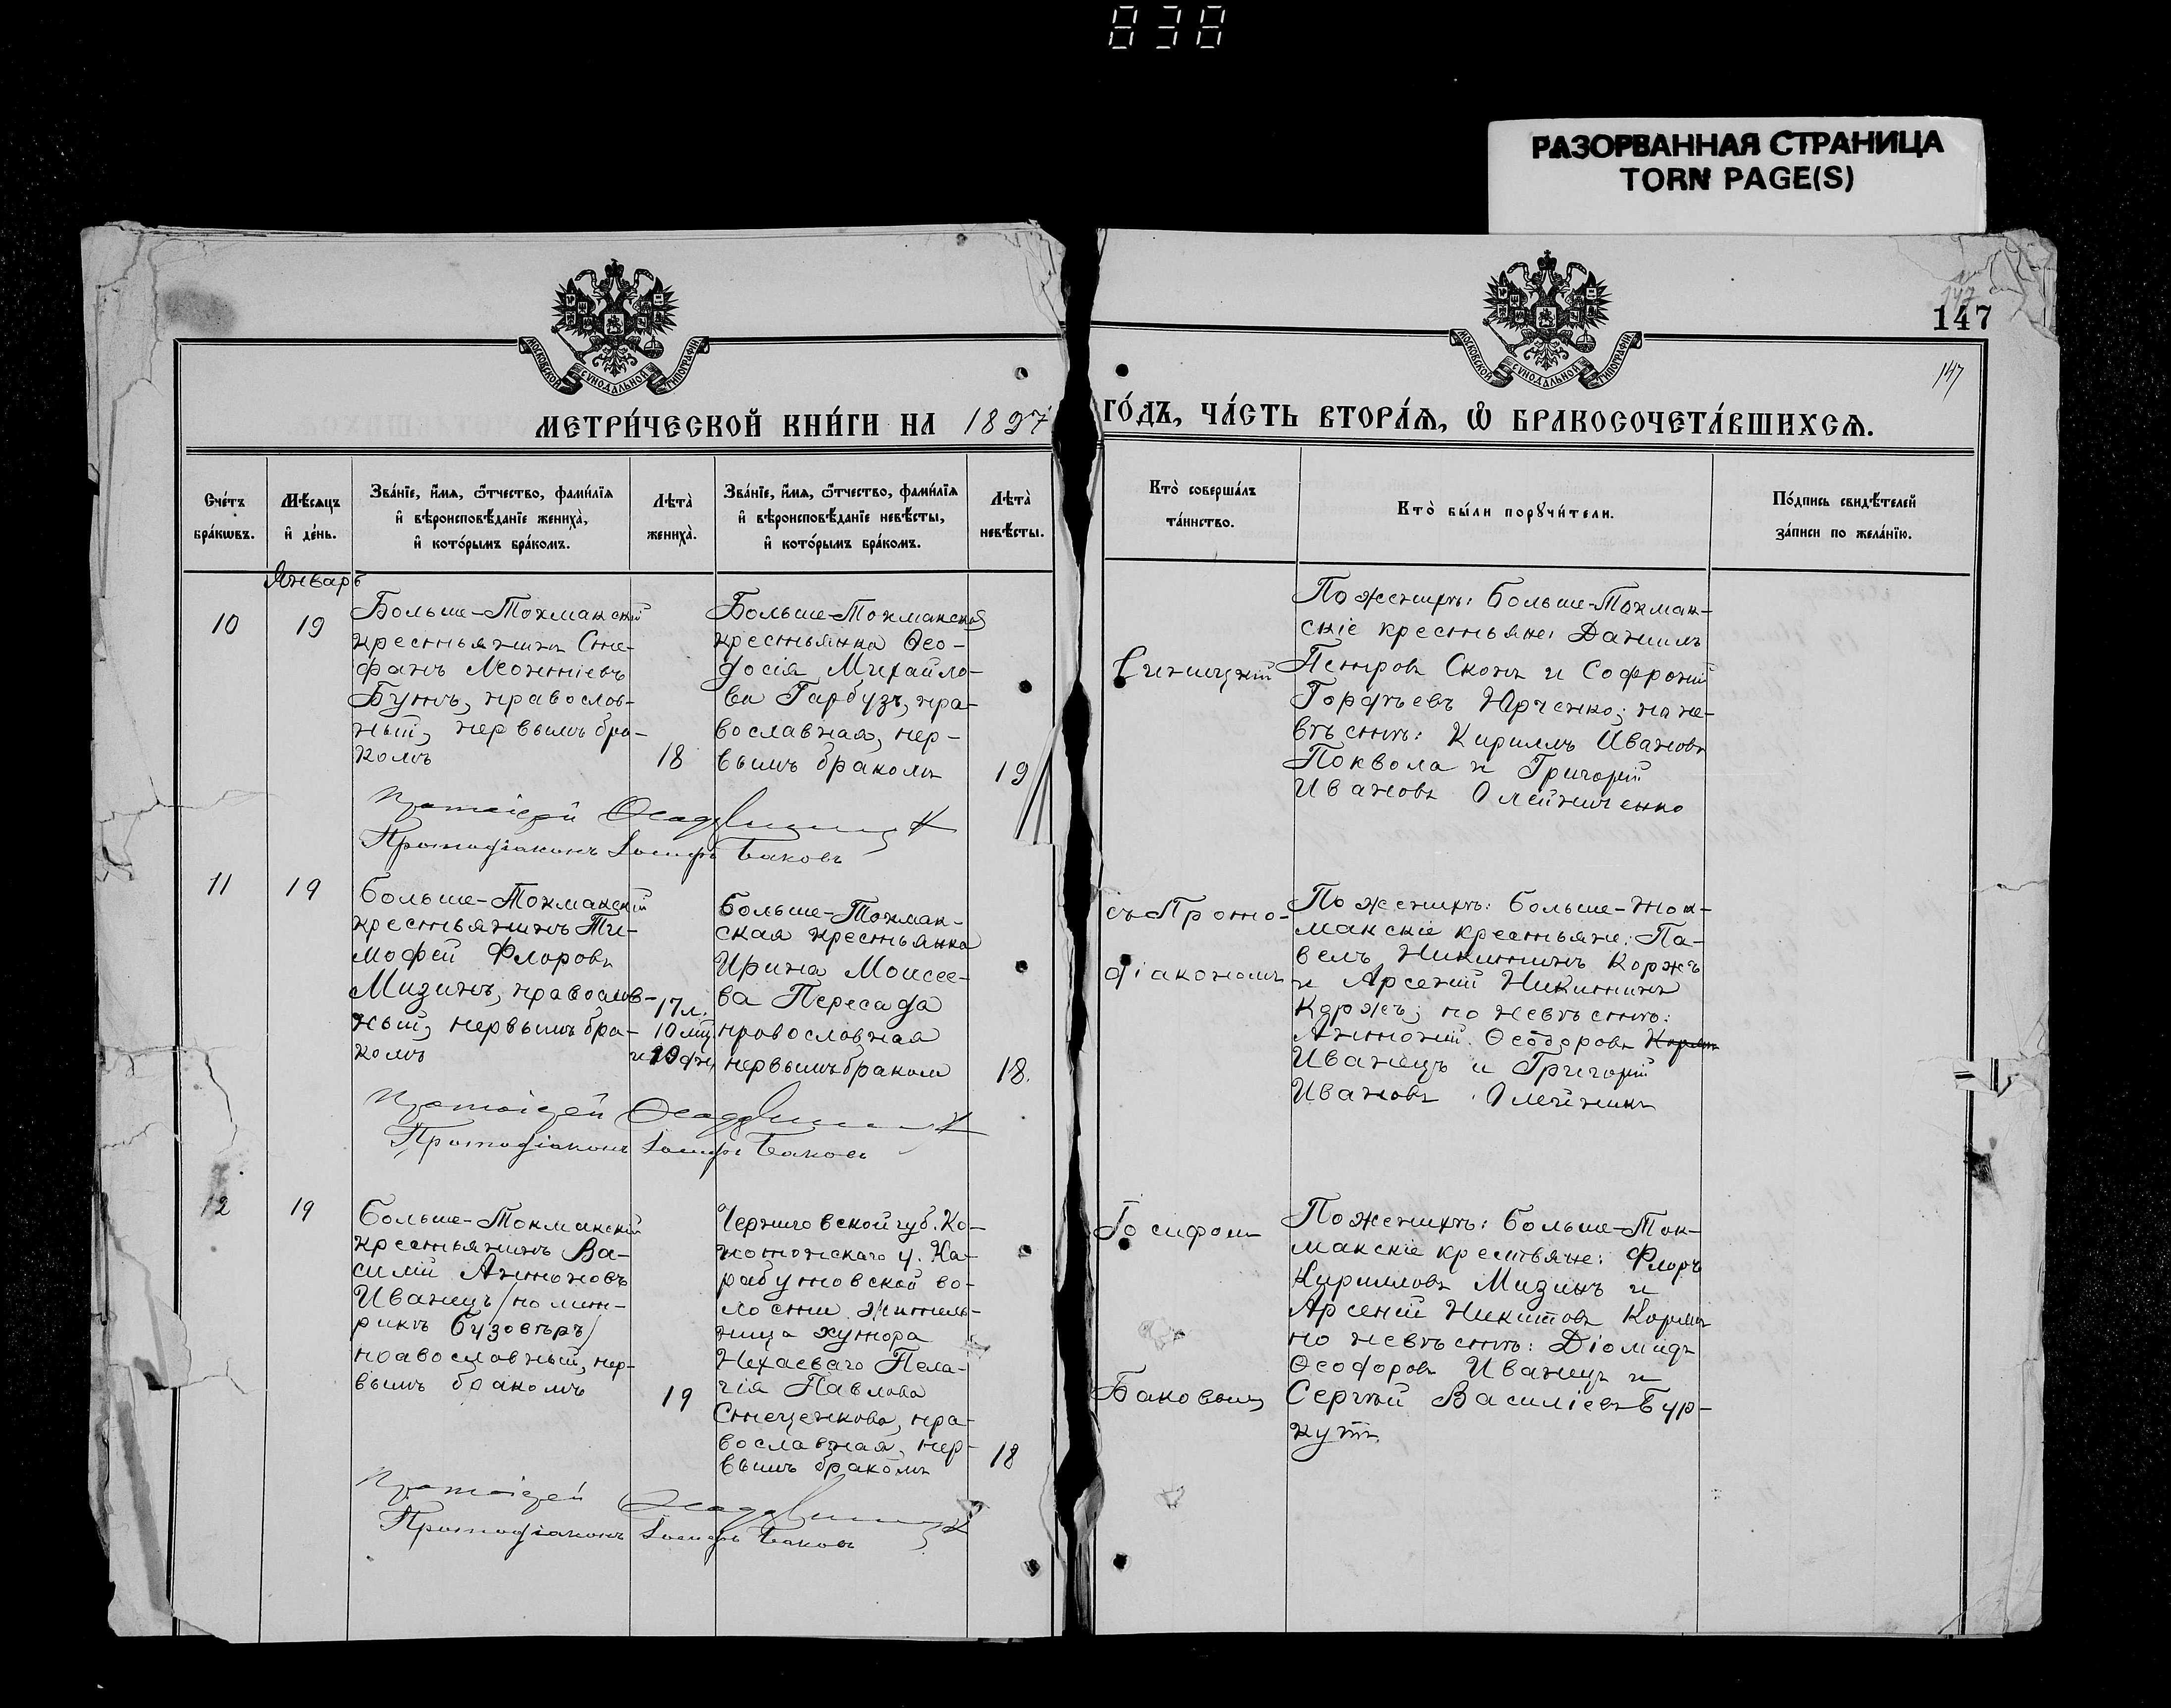 838
РАЗОРВАННАЯ СТРАНИЦА
TORN PAGE(S)
МОСКОВСКОЙ СѴНОДАЛЬНОЙ ТИПОГРАФІИ
МОСКОВСКОЙ СѴНОДАЛЬНОЙ ТИПОГРАФІИ
147
147
147
МЕТРИ́ЧЕСКОЙ КНИ́ГИ НА 1897 ГО́ДЪ, ЧА́СТЬ ВТОРА́Ѧ, Ѽ БРАКОСОЧЕТА́ВШИХСѦ.
Сче́тъ
бра́кѡвъ.
Мѣ́сѧцъ
и҆ де́нь.
Зва́нїе, и҆́мѧ, ѻ҆́тчество, фами́лїѧ
и҆ вѣроисповѣ́данїе жениха̀,
и҆ кото́рымъ бра́комъ.
Лѣта̀
жениха̀.
Зва́нїе, и҆́мѧ, ѻ҆́тчество, фами́лїѧ
и҆ вѣроисповѣ́данїе невѣ́сты,
и҆ кото́рымъ бра́комъ.
Лѣта̀
невѣ́сты.
Кто̀ соверша́лъ
та́инство.
Кто̀ бы́ли порꙋчи́тели.
По́дпись свидѣ́телей
за́писи по жела́нїю.
Январь
10
19
Больше-Токмакскій
крестьянинъ Сте-
фанъ Леонтіевъ
Бутъ, православ-
ный, первымъ бра-
комъ
18
Больше-Токмакская
крестьянка Ѳео-
досія Михайло-
ва Гарбузъ, пра-
вославная, пер-
вымъ бракомъ
19
Синицкій
По женихѣ: Больше-Токмак-
скіе крестьяне: Даніилъ
Петровъ Скокъ и Софроній
Гордѣевъ Юрченко; по не-
вѣстѣ: Кириллъ Ивановъ
Поквола и Григорій
Ивановъ Олейниченко
Протоіерей
Протодіаконъ Іосифъ Баковъ
11
19
Больше-Токмакскій
крестьянинъ Ти-
мофей Флоровъ
Мизинъ, православ-
ный, первымъ бра-
комъ
17 л.
10 мц.
и 10 дн.
Больше-Токмак-
ская крестьянка
Ирина Моисее-
ва Пересада
православная
первымъ бракомъ
18.
съ Прото-
діакономъ
По женихѣ: Больше-Ток-
макскіе крестьяне: Па-
велъ Никитинъ Коржъ
и Арсеній Никитинъ
Коржъ; по невѣстѣ:
Антоній Ѳеодоровъ
Иванецъ и Григорій
Ивановъ Олейникъ
Протоіерей
Протодіаконъ Іосифъ Баковъ
12
19
Больше-Токмакскій
крестьянинъ Ва-
силій Антоновъ
Иванецъ /по мет-
рикѣ Бузовѣръ/
православный, пер-
вымъ бракомъ
19
Черниговской губ. Ко-
нотопскаго у. Ка-
рабутовской во-
лости житель-
ница хутора
Нехаеваго Пела-
гія Павлова
Стеценкова, пра-
вославная, пер-
вымъ бракомъ
18
Іосифомъ
Баковымъ
По женихѣ: Больше-Ток-
макскіе крестьяне: Флоръ
Кирилловъ Мизинъ и
Арсеній Никитовъ Коржъ
по невѣстѣ: Діомидъ
Ѳеодоровъ Иванецъ и
Сергѣй Василіевъ Бур-
кутъ
Протоіерей
Протодіаконъ Іосифъ Баковъ